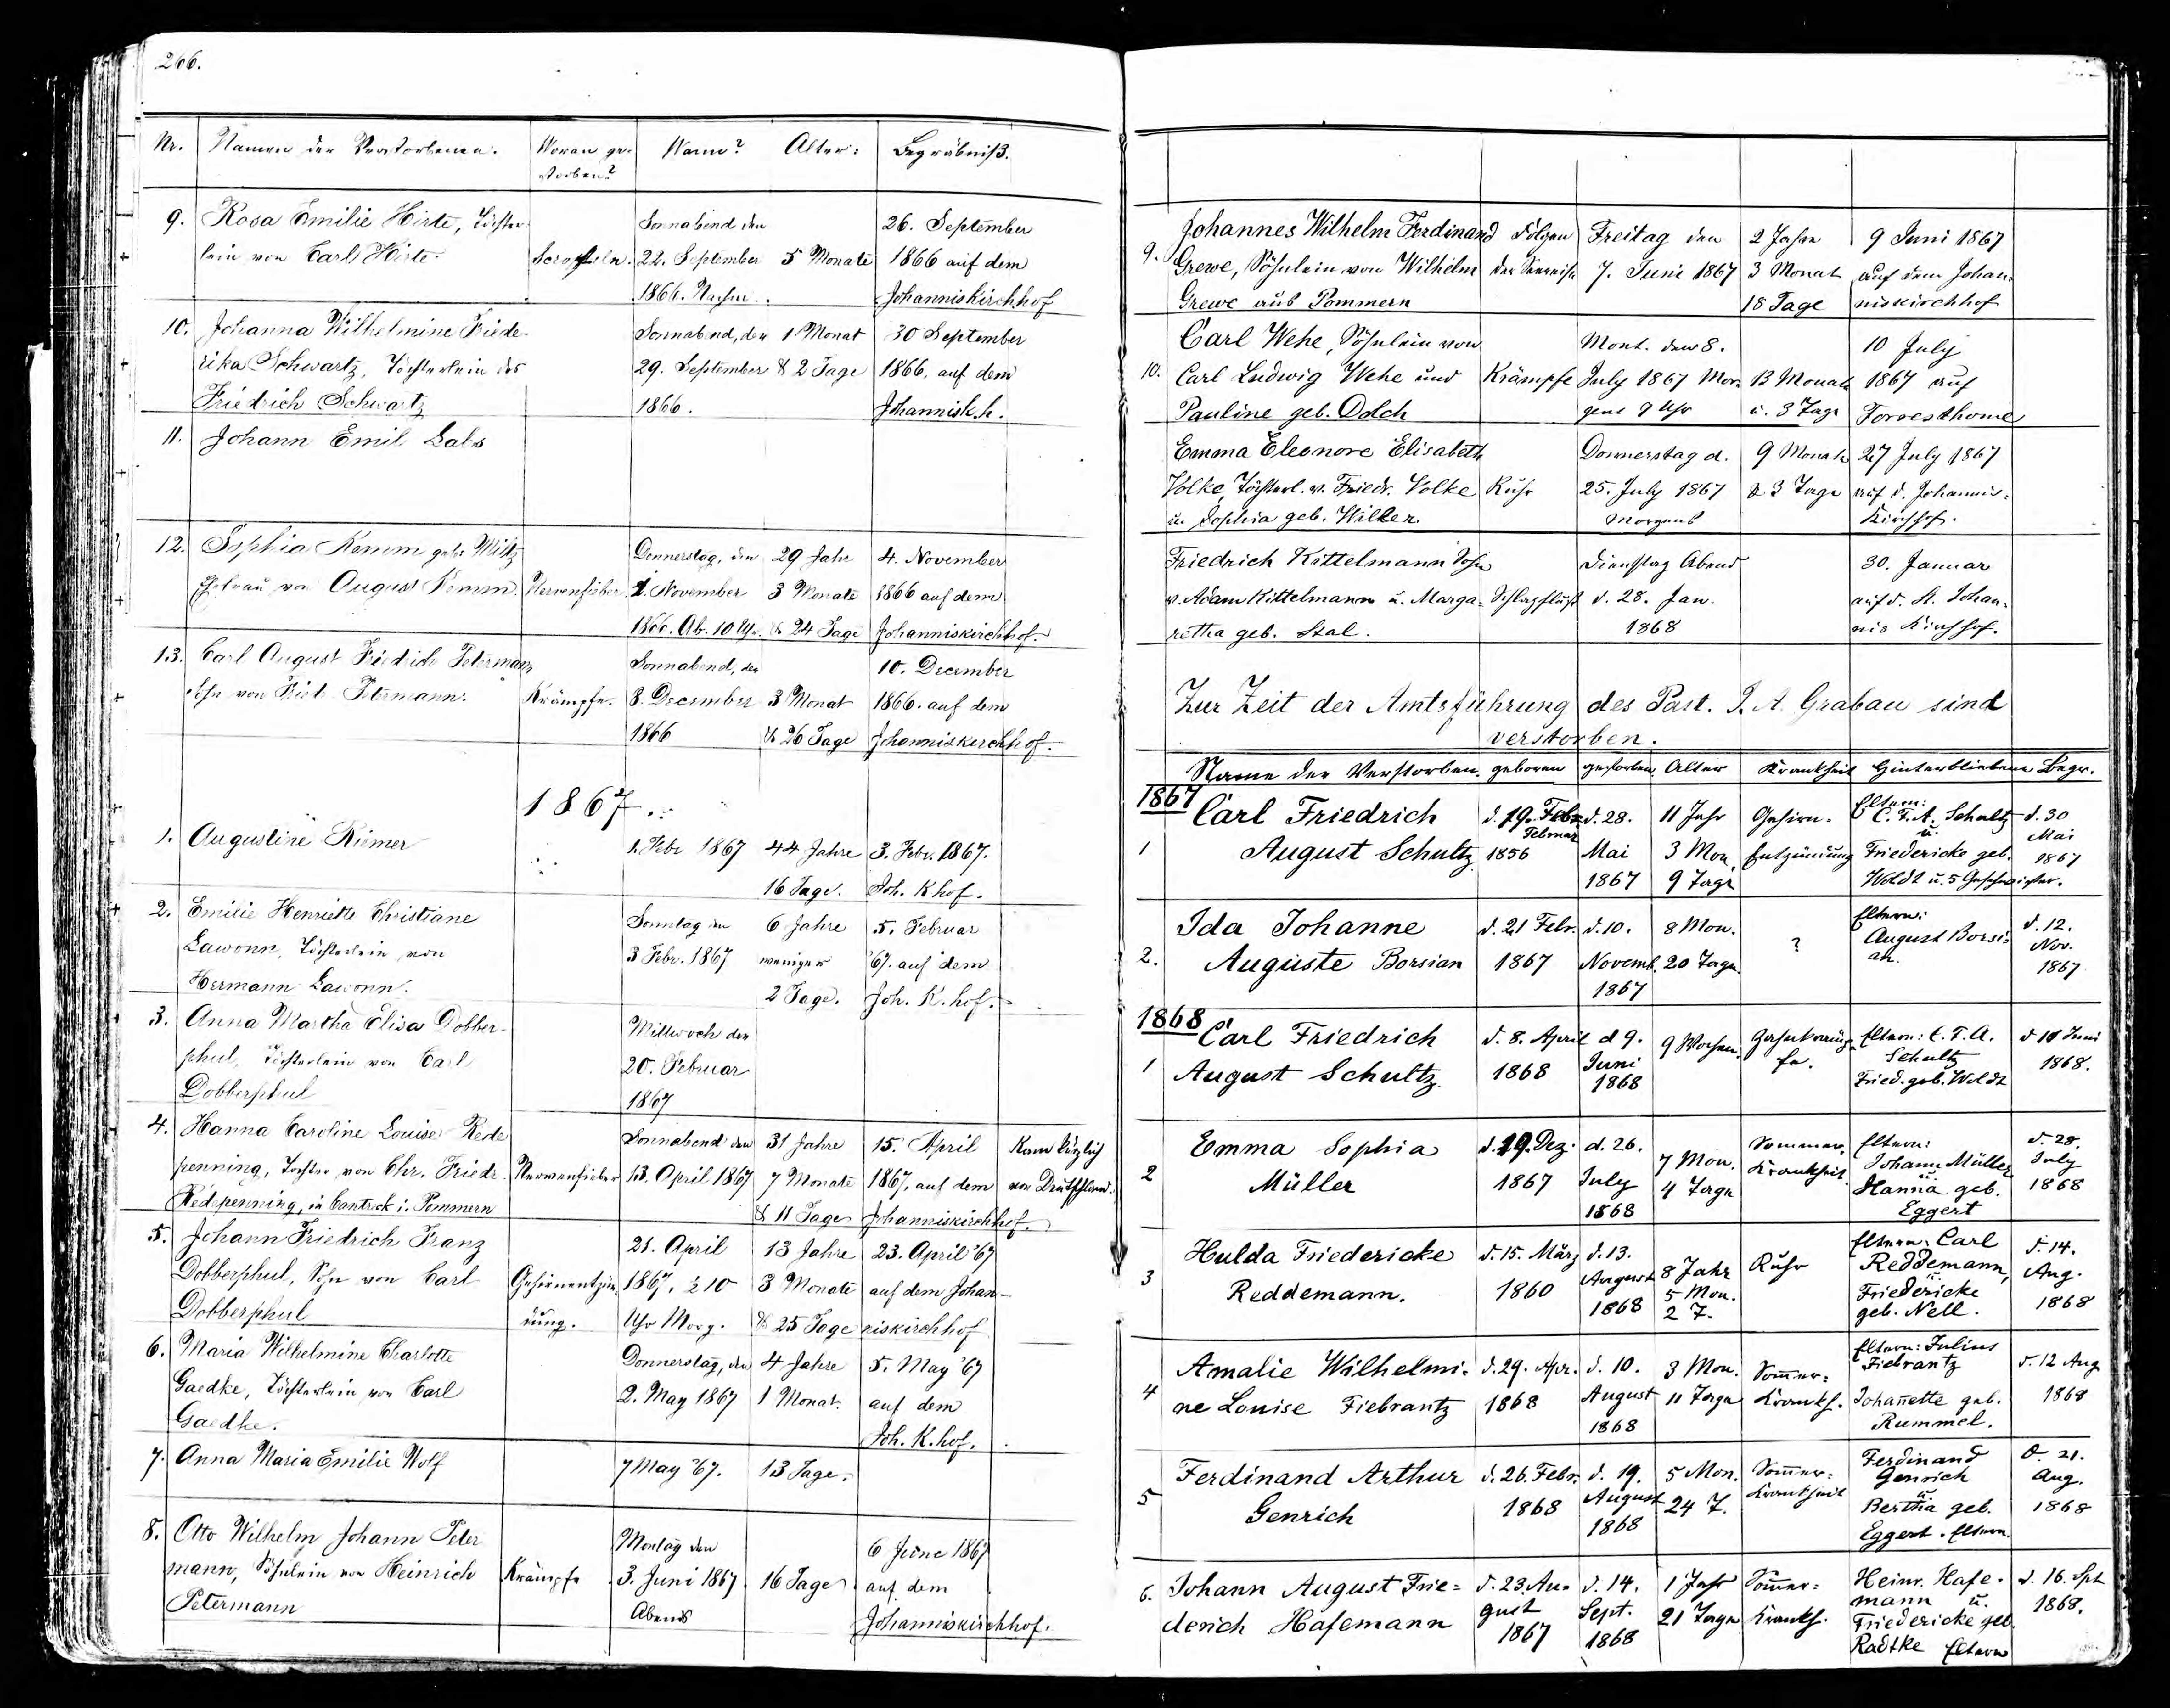 266.
Nr. Namen der Verstorbenen. Woran ge- Wann? Alter: Begräbniß.
storben?
9. Rosa Emilie Hirte, Töchter- Sonnabend den 26. September
lein von Carl Hirte. Scropheln. 22. September 5 Monate 1866 auf dem
1866. Johanniskirchhof
10. Johanna Wilhelmine Friede- Sonnabend, den 1 Monat 30 September
rika Schwartz, Töchterlein des 29. September & 2 Tage 1866, auf dem
Friedrich Schwartz 1866. Johannisk.h.
11. Johann Emil
12. Sophia Remm geb. Donnerstag, den 29 Jahr 4. November
Ehefrau von August Remm. Nervenfieber 1. November 3 Monate 1866 auf dem
1866. Ab. 10 Uhr. & 24 Tage Johanniskirchhof.
13. Carl August Friedrich Petermann Sonnabend, den 10. December
Sohn von Petermann. Krämpfe. 8. December 3 Monat 1866. auf dem
1866 & 26 Tage Johanniskirchhof.
1867.
1. Augustine Riemer 1. Febr 1867 44 Jahre 3. Febr. 1867.
16 Tage. Joh. Khof.
2. Emilie Henriette Christiane Sonntag den 6 Jahre 5. Februar
Lawonn, Töchterlein von 3 Febr. 1867 weniger '67. auf dem
Hermann Lawonn. 2 Tage. Joh. K.hof.
3. Anna Martha Elisa Dobber- Mittwoch den
phul, Töchterlein von Carl 20. Februar
Dobberphul 1867
4. Hanna Caroline Louise Rede Sonnabend den 31 Jahre 15. April Kam kürzlich
penning, Tochter von Chr. Friedr. Nervenfieber 13. April 1867 7 Monate 1867. auf dem von Deutschland.
Redepenning, in Cantreck i. Pommern & 11 Tage Johanniskirchhof.
5. Johann Friedrich Franz 21. April 13 Jahre 23. April '67
Dobberphul, Sohn von Carl Gehirnentzün- 1867, ½ 10 3 Monate auf dem Johan-
Dobberphul dung. Uhr Morg. & 25 Tage niskirchhof
6. Maria Wilhelmine Charlotte Donnerstag, den 4 Jahre 5. May '67
Gaedke, Töchterlein von Carl 2. May 1867 1 Monat. auf dem
Gaedke. Joh. K.hof.
7. Anna Maria Emilie Wolf 7 May '67. 13 Tage.
8. Otto Wilhelm Johann Peter Montag den 6 June 1867
mann, Söhnlein von Heinrich Krämpfe 3. Juni 1867 16 Tage auf dem
Petermann Abends Johanniskirchhof.
Johannes Wilhelm Ferdinand Folgen Freitag den 2 Jahre 9 Juni 1867
9. Grewe, Söhnlein von Wilhelm der 7. Juni 1867 3 Monat auf dem Johan-
Grewe aus Pommern 18 Tage niskirchhof
Carl Wehe, Söhnlein von Mont. den 8. 10 July
10. Carl Ludwig Wehe und Krämpfe July 1867 Mor- 13 Monate 1867 auf
Pauline geb. Dolch gens 9 Uhr u. 3 Tage
Emma Eleonore Elisabeth Donnerstag d. 9 Monate 27 July 1867
Volke, Töchterl. v. Friedr. Volke Ruhr 25. July 1867 & 3 Tage auf d. Johannis-
u. Sophia geb. Wilker. Morgens Kirchhof.
Friedrich Kittelmann Sohn Dienstag Abend 30. Januar
v. Adam Kittelmann u. Marga- Schlagfluß d. 28. Jan. auf d. St. Johan-
retha geb. Stal. 1868 nis Kirchhof.
Zur Zeit der Amtsführung des Past. J. A. Grabau sind
verstorben.
Name der Verstorben. geboren gestorben. Alter Krankheit Hinterbliebene Begr.
1867 Carl Friedrich d. 19. Febr. d. 28. 11 Jahr Gehirn- Eltern: C. F. A. Schultz d. 30
Februar u. Mai
1 August Schultz 1856 Mai 3 Mon. Entzündung Friedericke geb. 1867
1867 9 Tage Woldt u. 5 Geschwister.
Ida Johanne d. 21 Febr. d. 10. 8 Mon. ? Eltern: d. 12.
2. Auguste Borsian 1867 Novemb. 20 Tage. August Borsi- Nov.
1867 an. 1867
1868 Carl Friedrich d. 8. April d 9. 9 Wochen. Zahnkrämp- Eltern: C. F. A. d 10 Juni
1 August Schultz 1868 Juni fe. Schultz 1868.
1868 Fried. geb. Woldt
Emma Sophia d. 19. Dez. d. 26. 7 Mon. Sommer- Eltern: d. 28.
2 Müller 1867 July 4 Tage Krankheit Johann Müller July
1868 u. Hanna geb. 1868
Eggert
Hulda Friedericke d. 15. März d. 13. 8 Jahr Ruhr Eltern: Carl d. 14.
3 Reddemann. 1860 August 5 Mon. Reddemann, Aug.
1868 2 T. u. Friedericke 1868
geb. Nell.
Amalie Wilhelmi- d. 29. Apr. d. 10. 3 Mon. Som̅er- Eltern: Julius d. 12 Aug
4 ne Louise Fiebrantz 1868 August 11 Tage Krankh. Fiebrantz 1868
1868 Johan̅ette geb.
Rummel.
Ferdinand Arthur d. 26. Febr. d. 19. 5 Mon. Som̅er- Ferdinand d. 21.
5 Genrich 1868 August 24 T. Krankheit Genrich Aug.
1868 u. Bertha geb. 1868
Eggert. Eltern.
6. Johann August Frie- d. 23. Au- d. 14. 1 Jahr Som̅er- Heinr. Hafe- d. 16. Spt
derich Hafemann gust Sept. 21 Tage Krankh. mann u. 1868.
1867 1868 Friedericke geb.
Radtke Eltern